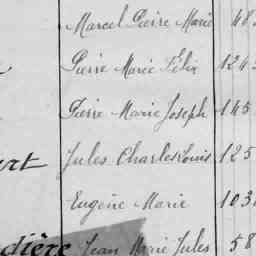 Marcel Pierre Marie 48
Pierre Marie Félix 124
Pierre Marie Joseph 145
Jules Charles Louis 125
Eugène Marie 103
dière Jean Marie Jules 58